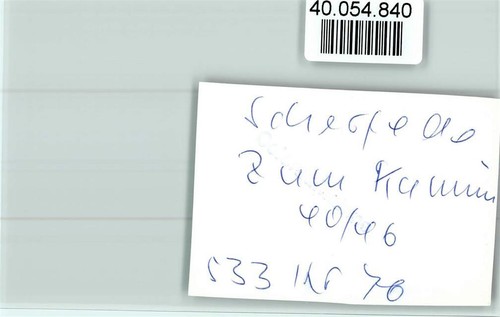 40.054.840
Scherfede
Zum Kamin
40/46
533
76